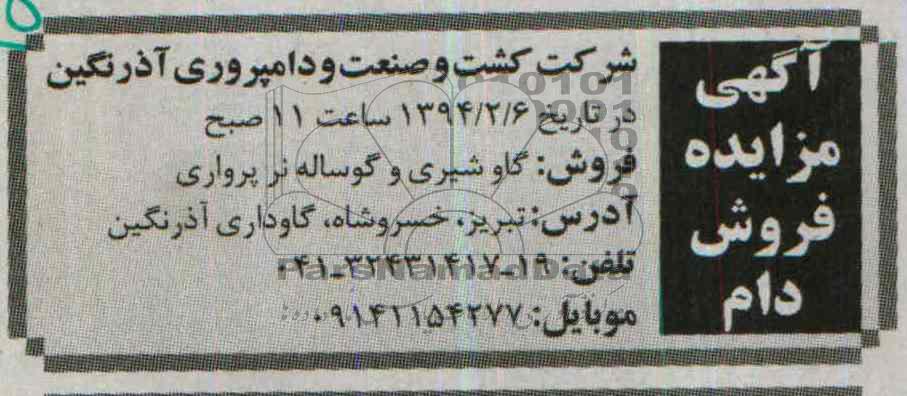 آگهی
مزایده
فروش
دام
شرکت کشت و صنعت و دامپروری آذرنگین
در تاریخ ۱۳۹۴/۲/۶ ساعت ۱۱ صبح
فروش: گاو شیری و گوساله نر پرواری
آدرس: تبریز، خسروشاه، گاوداری آذرنگین
تلفن: ۱۹-۳۲۴۳۱۴۱۷-۰۴۱
موبایل: ۰۹۱۴۲۱۵۴۲۷۷
ParsNamadData